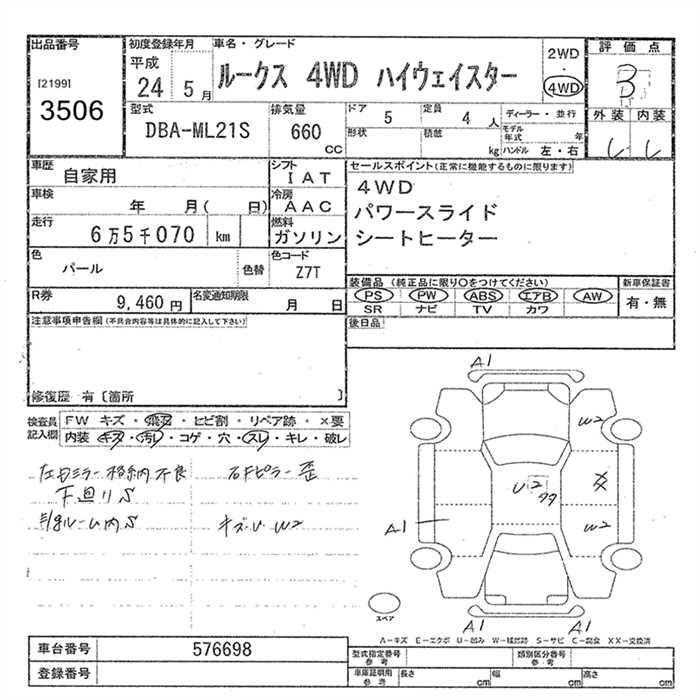 出品番号
[2199]
3506
初度登録年月
平成
24 5月
車名・グレード
ルークス 4WD ハイウェイスター
2WD
・
4WD
評価点
3
外装 内装
型式
DBA-ML21S
排気量
660
cc
ドア 5
定員 4 人
形状
積載 kg
ディーラー・並行
モデル年式 年
ハンドル 左・右
車歴
自家用
シフト
IAT
車検
年 月( 日)
冷房
AAC
走行
6万5千070 km
燃料
ガソリン
色
パール
色替
色コード
Z7T
R券
9,460 円
名変通知期限
月 日
セールスポイント(正常に機能するものに限ります)
4WD
パワースライド
シートヒーター
装備品 (純正品に限り○をつけてください)
PS PW ABS エアB AW
SR ナビ TV カワ
新車保証書
有・無
後日品
注意事項申告欄(不具合内容等は具体的に記入して下さい)
修復歴 有 〔箇所 〕
検査員記入欄
FW キズ・飛石・ヒビ割・リペア跡・×要
内装 キズ・汚レ・コゲ・穴・スレ・キレ・破レ
左日ミラー格納不良 右Fピラー歪
下廻りS
ルーム内S キズ・U W2
A1
W2
U2
A1
W2
A1 A1
スペア
A-キズ E-エクボ U-凹み W-補修跡 S-サビ C-腐食 XX-交換済
車台番号
576698
登録番号
型式指定番号
参考
類別区分番号
参考
車庫証明用
参考
長さ cm
幅 cm
高さ cm